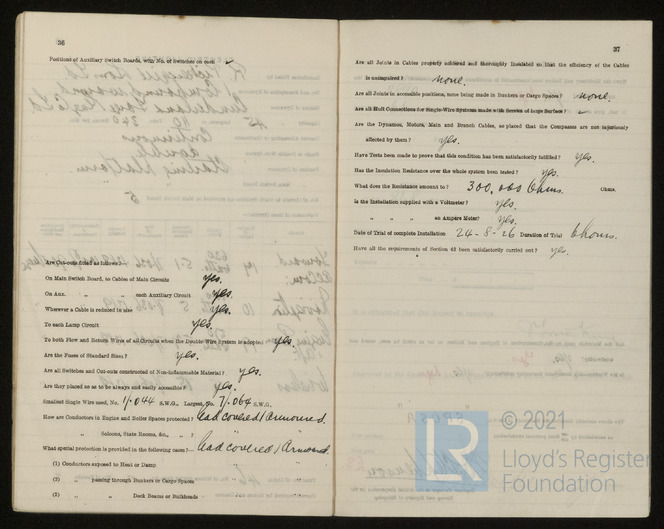 36
Positions of Auxiliary Switch Boards, with No. of Switches on each ✓
Are Cut-outs fitted as follows:—
On Main Switch Board, to Cables of Main Circuits yes.
On Aux. „ „ each Auxiliary Circuit yes.
Wherever a Cable is reduced in size yes.
To each Lamp Circuit yes.
To both Flow and Return Wires of all Circuits when the Double-Wire System is adopted yes.
Are the Fuses of Standard Sizes? yes.
Are all Switches and Cut-outs constructed of Non-inflammable Material? yes.
Are they placed so as to be always and easily accessible? yes.
Smallest Single Wire used, No. 1/.044 S.W.G., Largest, No. 7/.064 S.W.G.
How are Conductors in Engine and Boiler Spaces protected? Lead covered / Armoured.
„ Saloons, State Rooms, &c., „ ? „ „
What special protection is provided in the following cases?— Lead covered / Armoured.
(1) Conductors exposed to Heat or Damp „ „
(2) „ passing through Bunkers or Cargo Spaces „ „
(3) „ „ Deck Beams or Bulkheads „ „
37
Are all Joints in Cables properly soldered and thoroughly insulated so that the efficiency of the Cables
is unimpaired? none.
Are all Joints in accessible positions, none being made in Bunkers or Cargo Spaces? none.
Are all Hull Connections for Single-Wire Systems made with Screws of large Surface? ✓
Are the Dynamos, Motors, Main and Branch Cables, so placed that the Compasses are not injuriously
affected by them? yes.
Have Tests been made to prove that this condition has been satisfactorily fulfilled? yes.
Has the Insulation Resistance over the whole system been tested? yes.
What does the Resistance amount to? 300,000 Ohms. Ohms.
Is the Installation supplied with a Voltmeter? yes.
„ „ „ an Ampere Meter? yes.
Date of Trial of complete Installation 24-8-26 Duration of Trial 6 hours.
Have all the requirements of Section 42 been satisfactorily carried out? yes.
LR
© 2021
Lloyd's Register
Foundation